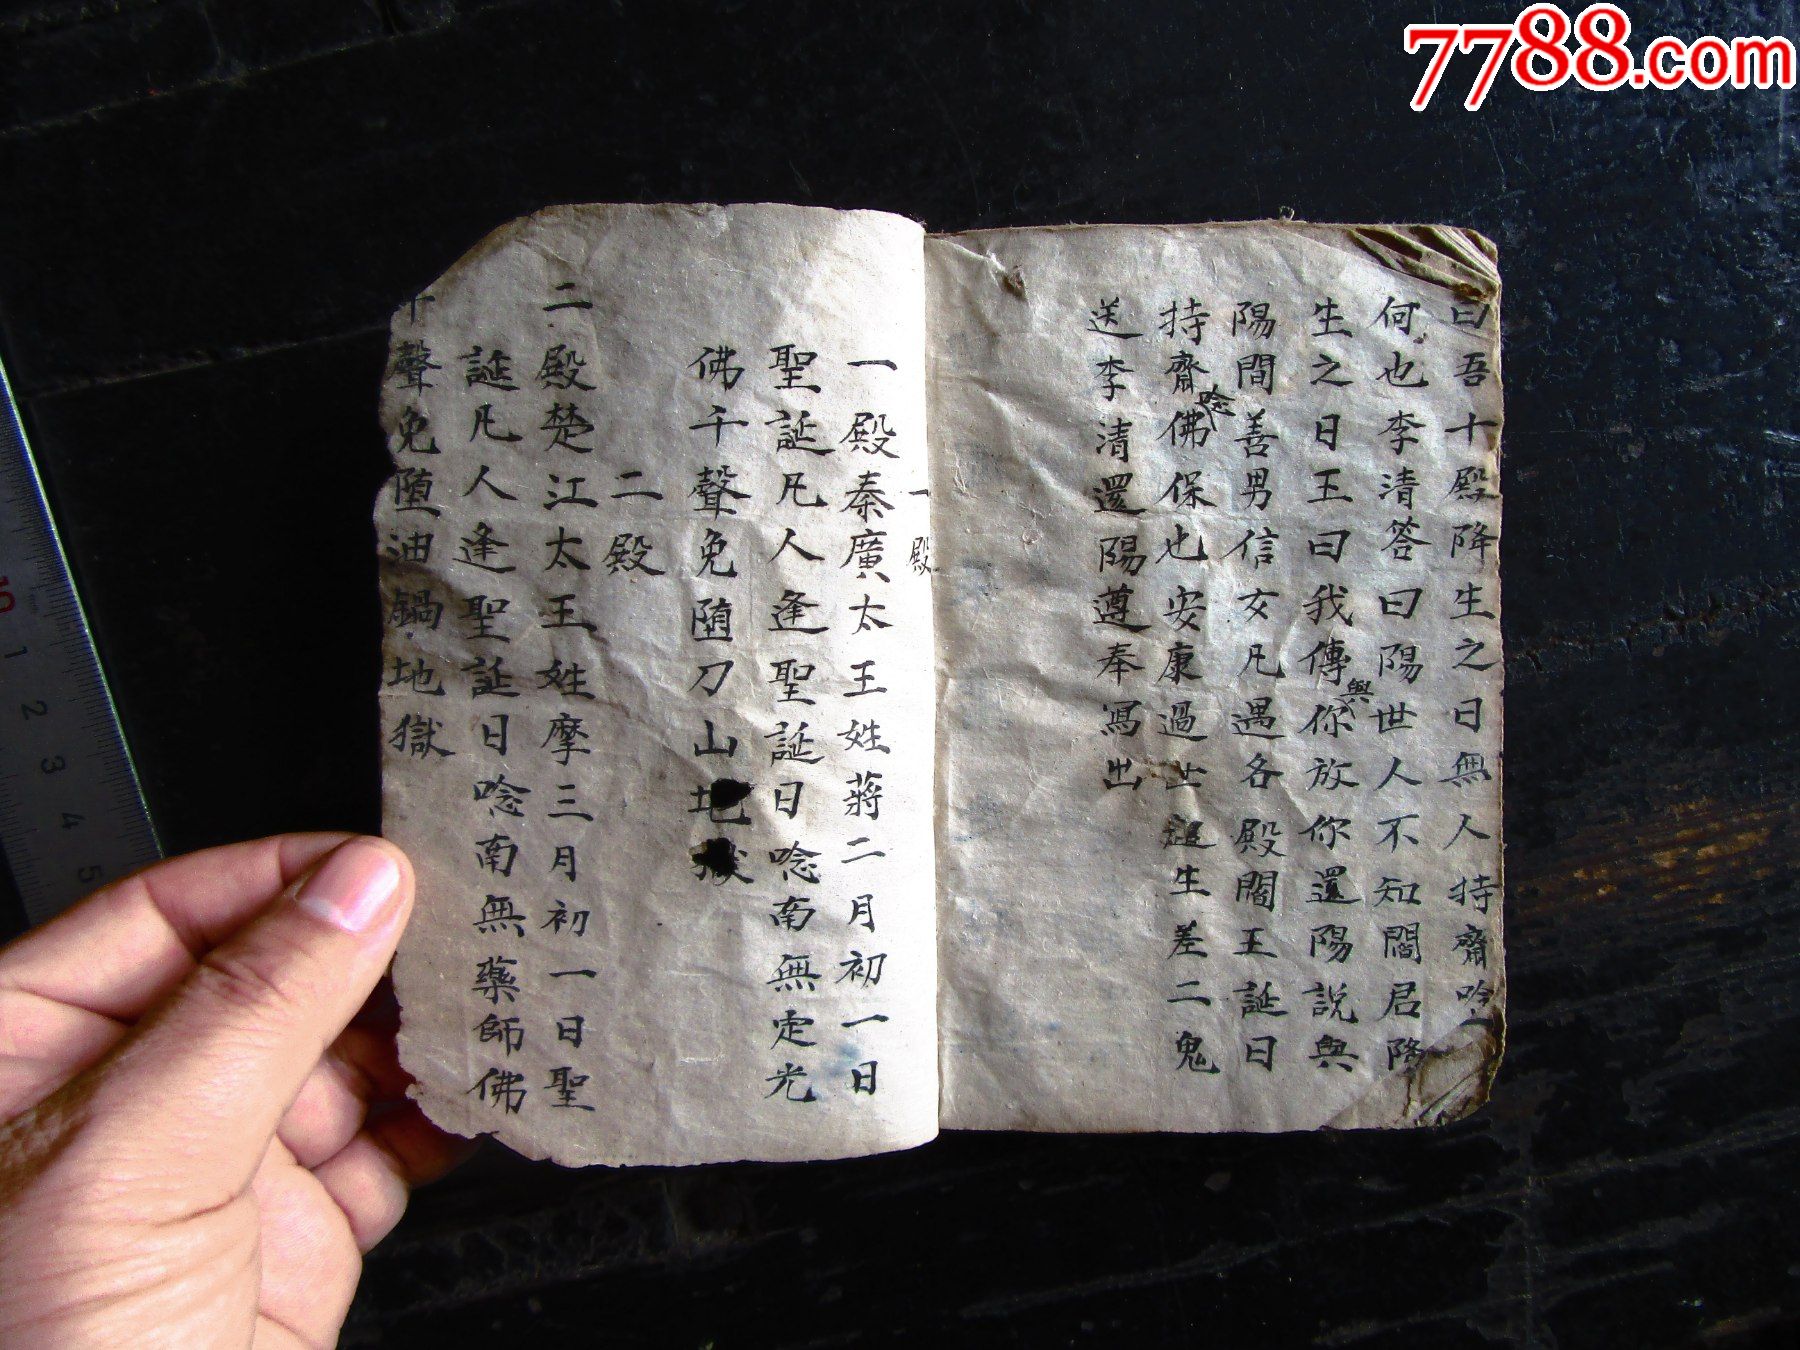 7788.com
曰吾十殿降生之日無人持齋唸
何也李清答曰陽世人不知閻君降
生之日王曰我傳與你放你還陽説與
陽間善男信女凡遇各殿閻王誕日
持齋唸佛保也安康過世超生差二鬼
送李清還陽遵奉寫出
一殿
一殿秦廣太王姓蔣二月初一日
聖誕凡人逢聖誕日唸南無定光
佛千聲免随刀山地獄
二殿
二殿楚江太王姓摩三月初一日聖
誕凡人逢聖誕日唸南無藥師佛
千聲免堕油鍋地獄
10
1
2
3
4
5